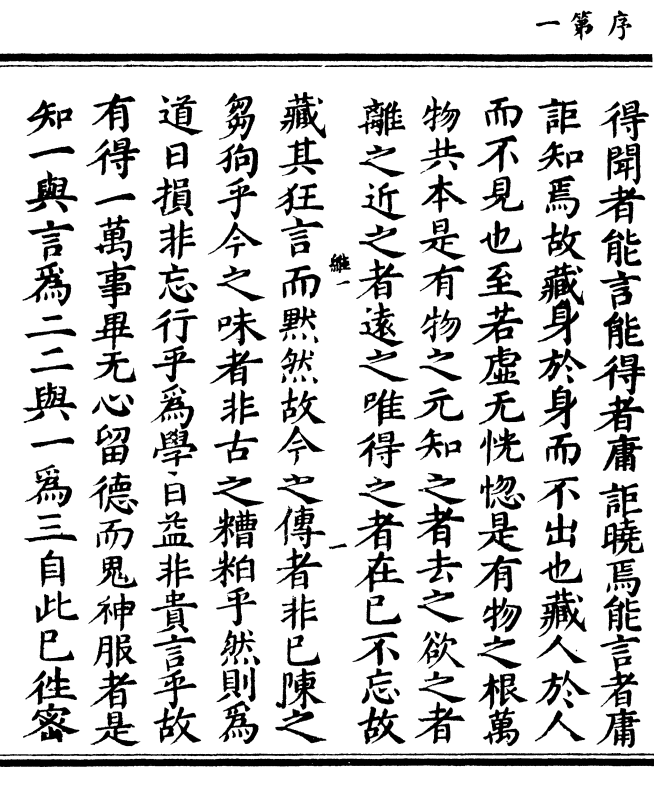 序第一
得聞者能言能得者庸詎曉焉能言者庸
詎知焉故藏身於身而不出也藏人於人
而不見也至若虛无恍惚是有物之根萬
物共本是有物之元知之者去之欲之者
離之近之者遠之唯得之者在已不忘故
維一
一
藏其狂言而默然故今之傳者非已陳之
芻狗乎今之味者非古之糟粕乎然則爲
道日損非忘行乎爲學日益非貴言乎故
有得一萬事畢无心留德而鬼神服者是
知一與言爲二二與一爲三自此已徃密